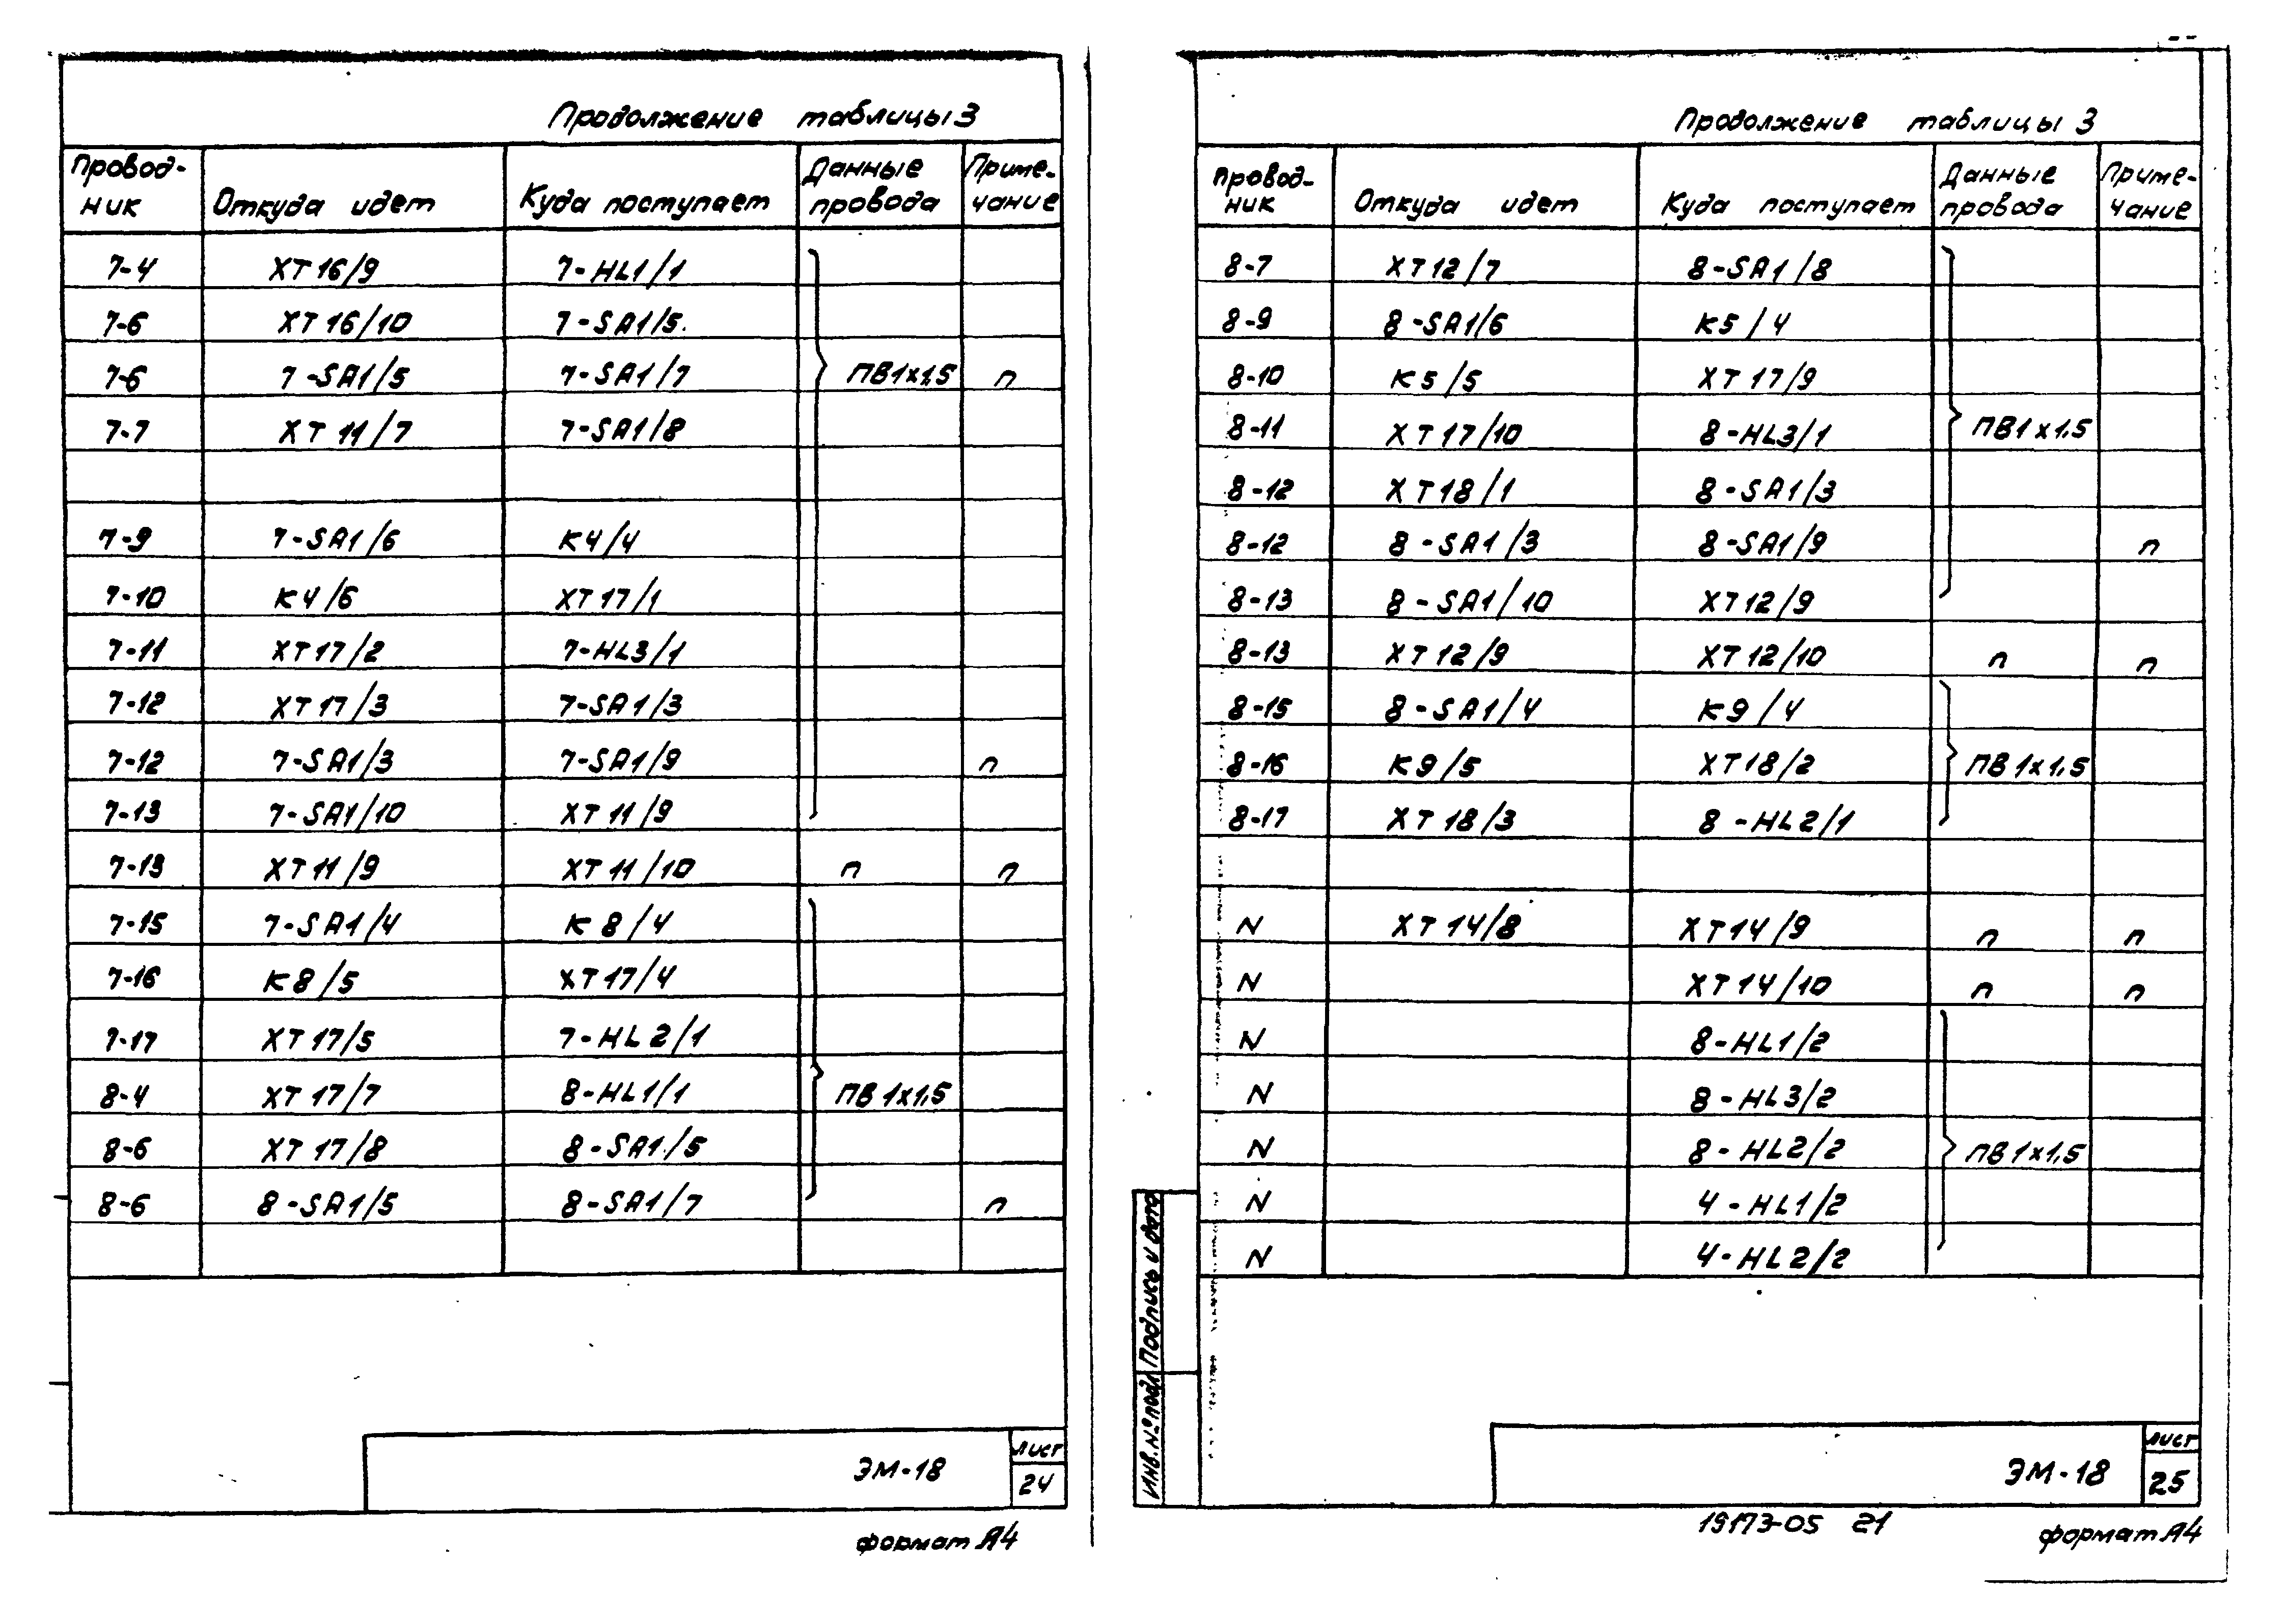 Продолжение таблицы 3
Провод-ник Откуда идет Куда поступает Данные провода Приме-чание
7-4 XT16/9 7-HL1/1
7-6 XT16/10 7-SA1/5
7-6 7-SA1/5 7-SA1/7 ПВ1х1,5 п
7-7 XT11/7 7-SA1/8
7-9 7-SA1/6 K4/4
7-10 K4/6 XT17/1
7-11 XT17/2 7-HL3/1
7-12 XT17/3 7-SA1/3
7-12 7-SA1/3 7-SA1/9 п
7-13 7-SA1/10 XT11/9
7-13 XT11/9 XT11/10 п п
7-15 7-SA1/4 K8/4
7-16 K8/5 XT17/4
7-17 XT17/5 7-HL2/1
8-4 XT17/7 8-HL1/1 ПВ1х1,5
8-6 XT17/8 8-SA1/5
8-6 8-SA1/5 8-SA1/7 п
ЭМ-18
Лист
24
формат А4
Продолжение таблицы 3
Провод-ник Откуда идет Куда поступает Данные провода Приме-чание
8-7 XT12/7 8-SA1/8
8-9 8-SA1/6 K5/4
8-10 K5/5 XT17/9
8-11 XT17/10 8-HL3/1 ПВ1х1,5
8-12 XT18/1 8-SA1/3
8-12 8-SA1/3 8-SA1/9 п
8-13 8-SA1/10 XT12/9
8-13 XT12/9 XT12/10 п п
8-15 8-SA1/4 K9/4
8-16 K9/5 XT18/2 ПВ1х1,5
8-17 XT18/3 8-HL2/1
N XT14/8 XT14/9 п п
N XT14/10 п п
N 8-HL1/2
N 8-HL3/2
N 8-HL2/2 ПВ1х1,5
N 4-HL1/2
N 4-HL2/2
Подпись и дата
Инв.№ подл
ЭМ-18
Лист
25
19173-05 21
формат А4